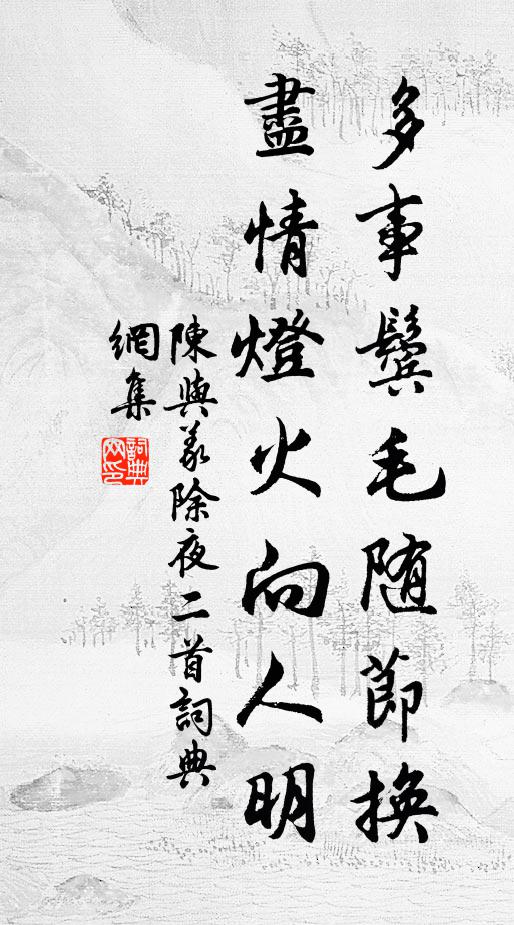 多事鬢毛随節換
盡情燈火向人明
陳與義除夜二首詞典
網集
詞典网印